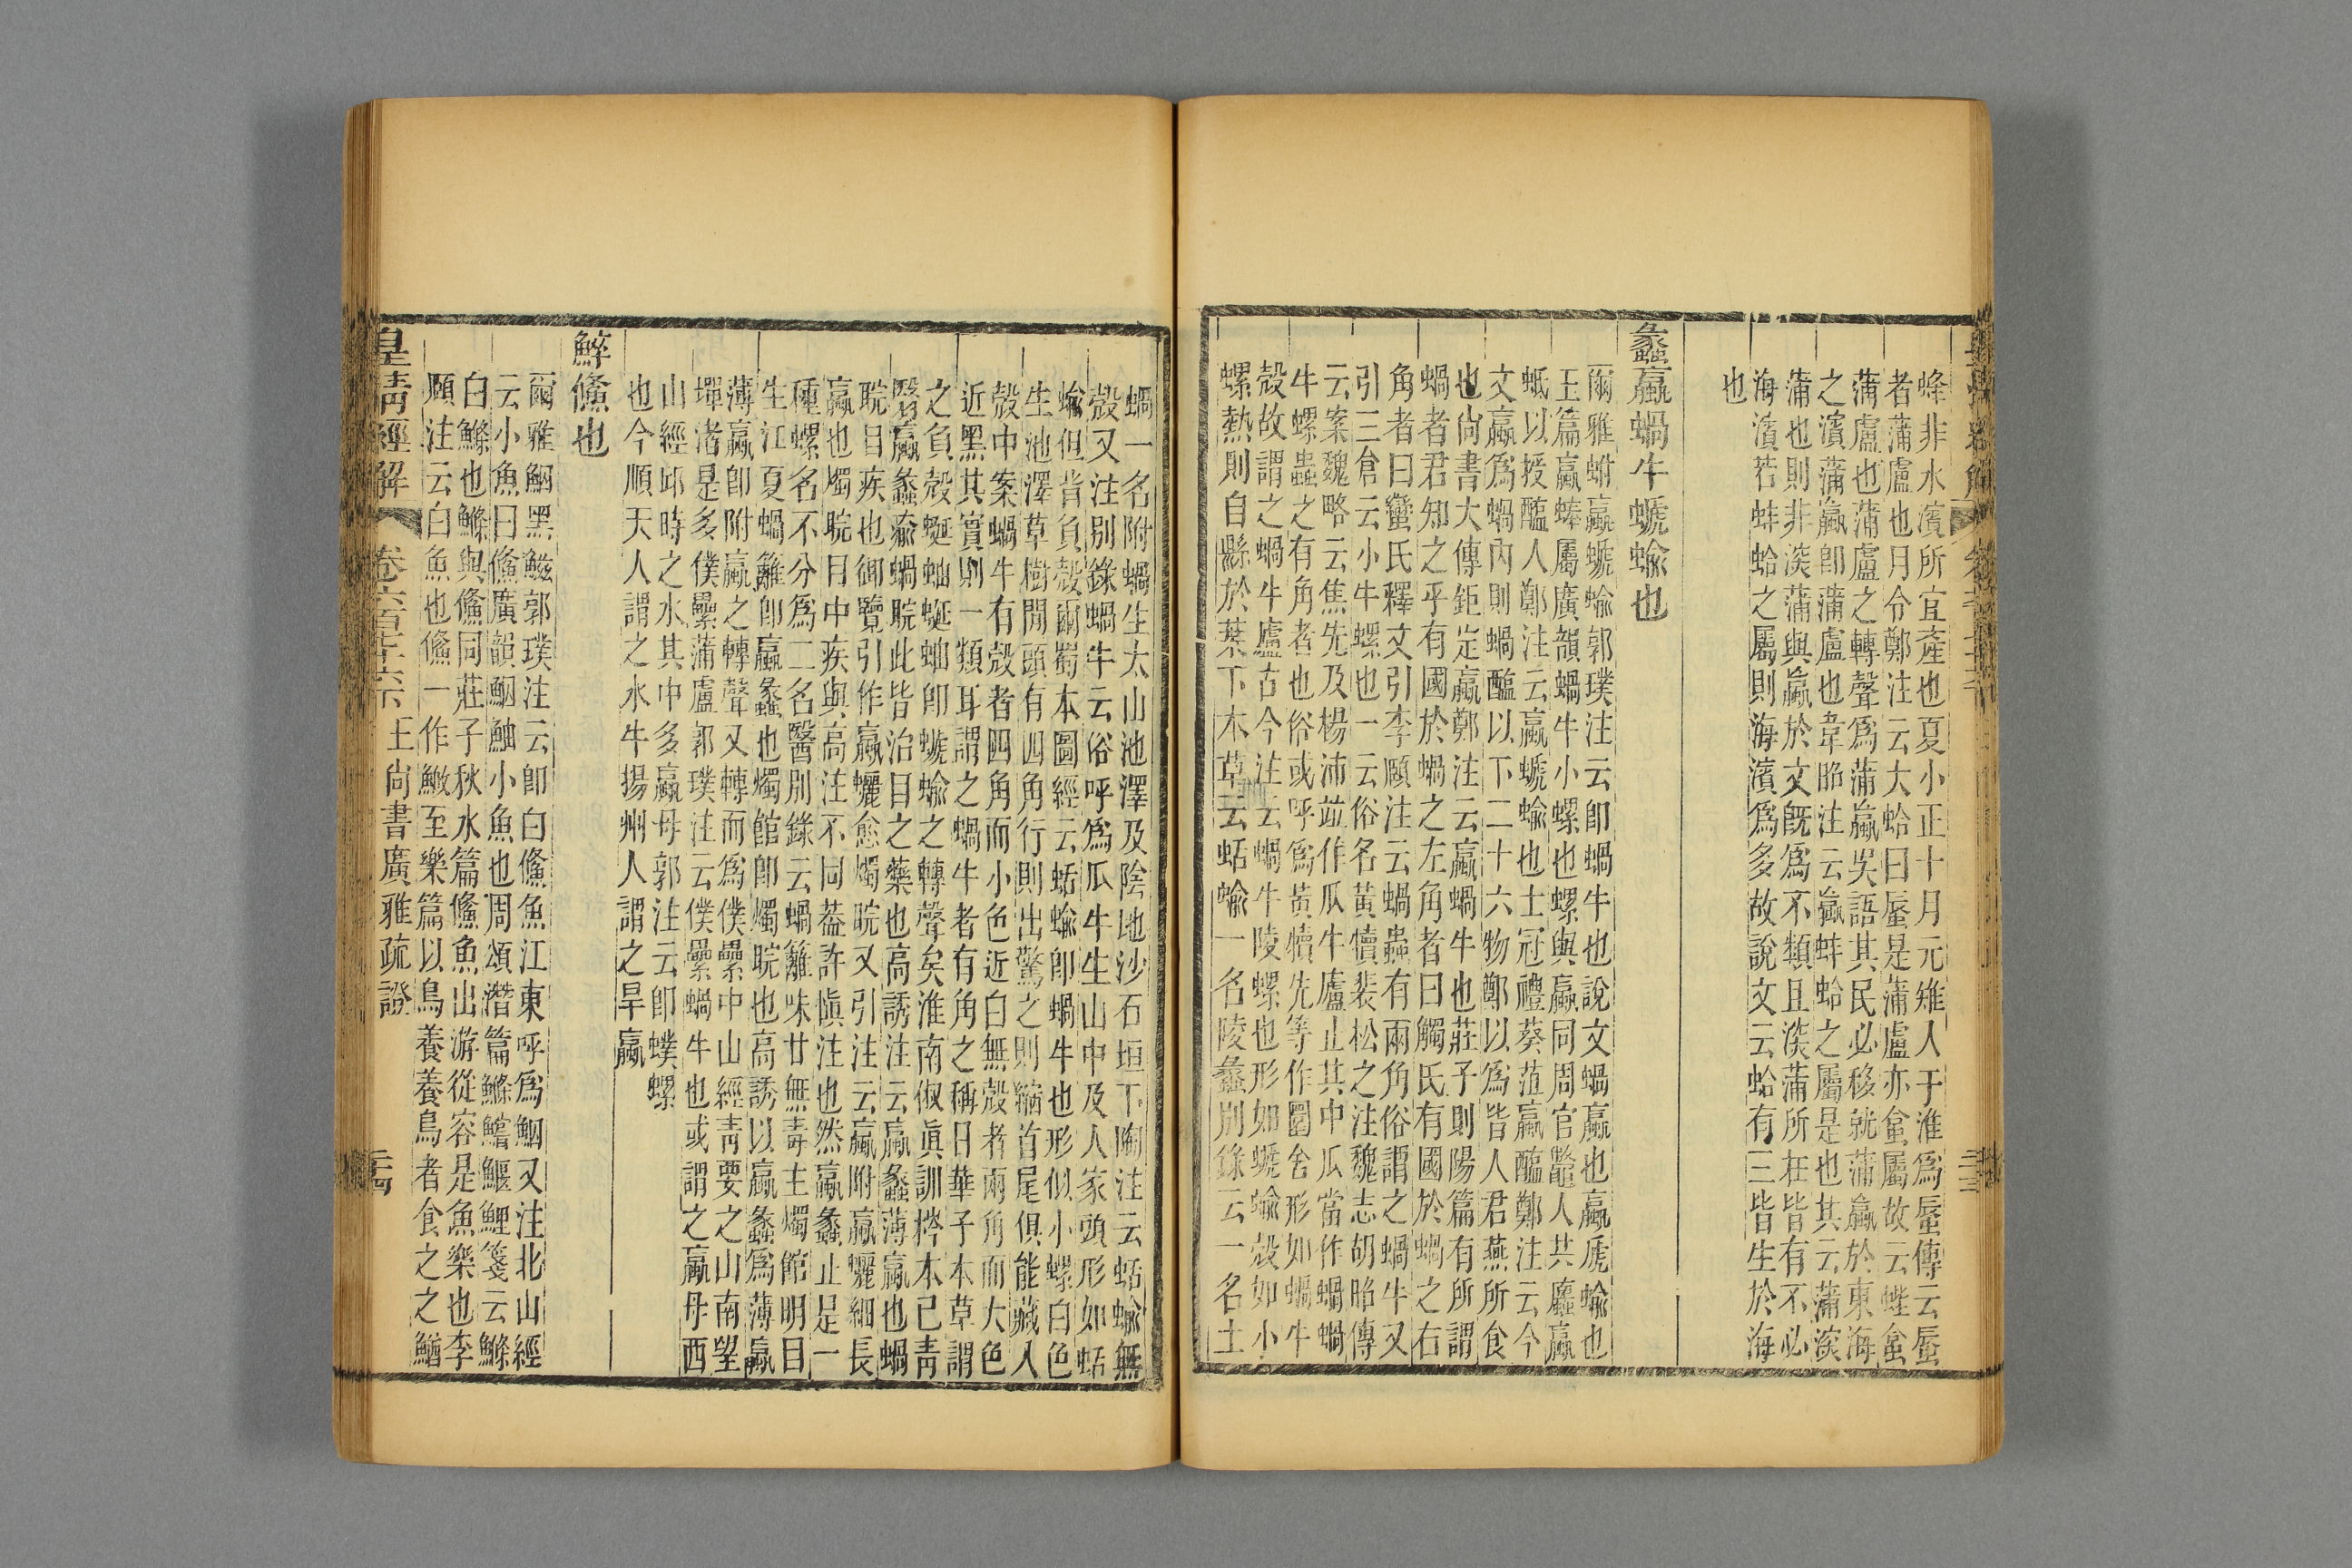 蜂非水濱所宜產也夏小正十月元雉人于淮爲蜃傳云蜃
者蒲盧也月令鄭注云大蛤曰蜃是蒲盧亦蚠屬故云蜌蚠
蒲盧也蒲盧之轉聲爲蒲蠃吳語其民必移就蒲蠃於東海
之濱蒲蠃卽蒲盧也韋昭注云蠃蚌蛤之屬是也其云蒲深
蒲也則非深蒲與蠃於文旣爲不類且深蒲所在皆有不必
海濱若蚌蛤之屬則海濱爲多故說文云蛤有三皆生於海
也
蠡蠃蝸牛螔蝓也
爾雅蚹蠃螔蝓郭璞注云卽蝸牛也說文蝸蠃也蠃虒蝓也
玉篇蠃蜯屬廣韻蝸牛小螺也螺與蠃同周官鼈人共蠯蠃
蚳以授醢人鄭注云蠃螔蝓也士冠禮葵菹蠃醢鄭注云今
文蠃爲蝸內則蝸醢以下二十六物鄭以爲皆人君燕所食
也尙書大傳鉅定蠃鄭注云蠃蝸牛也莊子則陽篇有所謂
蝸者君知之乎有國於蝸之左角者曰觸氏有國於蝸之右
角者曰蠻氏釋文引李頤注云蝸蟲有兩角俗謂之蝸牛又
引三倉云小牛螺也一云俗名黃犢裴松之注魏志胡昭傳
云案魏略云焦先及楊沛竝作瓜牛廬止其中瓜當作蝸蝸
牛螺蟲之有角者也俗或呼爲黃犢先等作圜舍形如蝸牛
殼故謂之蝸牛廬古今注云蝸牛陵螺也形如螔蝓殼如小
螺熱則自縣於葉下本草云蛞蝓一名陵蠡別錄云一名土
蝸一名附蝸生太山池澤及陰地沙石垣下陶注云蛞蝓無
殼又注別錄蝸牛云俗呼爲瓜牛生山中及人家頭形如蛞
蝓但背負殼爾蜀本圖經云蛞蝓卽蝸牛也形似小螺白色
生池澤草樹閒頭有四角行則出驚之則縮首尾俱能藏入
殼中案蝸牛有殼者四角而小色近白無殼者兩角而大色
近黑其實則一類耳謂之蝸牛者有角之稱日華子本草謂
之負殼蜒蚰蜒蚰卽螔蝓之轉聲矣淮南俶眞訓梣木已靑
翳蠃蠡瘉蝸睆此皆治目之藥也高誘注云蠃蠡薄蠃也蝸
睆目疾也御覽引作蠃蠬愈燭睆又引注云蠃附蠃蠬細長
蠃也燭睆目中疾與高注不同葢許愼注也然蠃蠡止是一
種螺名不分爲二名醫別錄云蝸籬味廿無毒主燭館明目
生江夏蝸籬卽蠃蠡也燭館卽燭睆也高誘以蠃蠡爲薄蠃
薄蠃卽附蠃之轉聲又轉而爲僕纍中山經靑要之山南望
墠渚是多僕纍蒲盧郭璞注云僕纍蝸牛也或謂之蠃母西
山經邱時之水其中多蠃母郭注云卽蟆螺
也今順天人謂之水牛揚州人謂之旱蠃
鮮鯈也
爾雅鮂黑鰦郭璞注云卽白鯈魚江東呼爲鮂又注北山經
云小魚曰鯈廣韻鮂鮋小魚也周頌潛篇鰷鱨鰋鯉箋云鰷
白鰷也鰷與鯈同莊子秋水篇鯈魚出游從容是魚樂也李
頤注云白魚也鯈一作鰷至樂篇以鳥養養鳥者食之之鰌
皇淸經解 卷六百七十六下 王尙書廣雅疏證 二十四